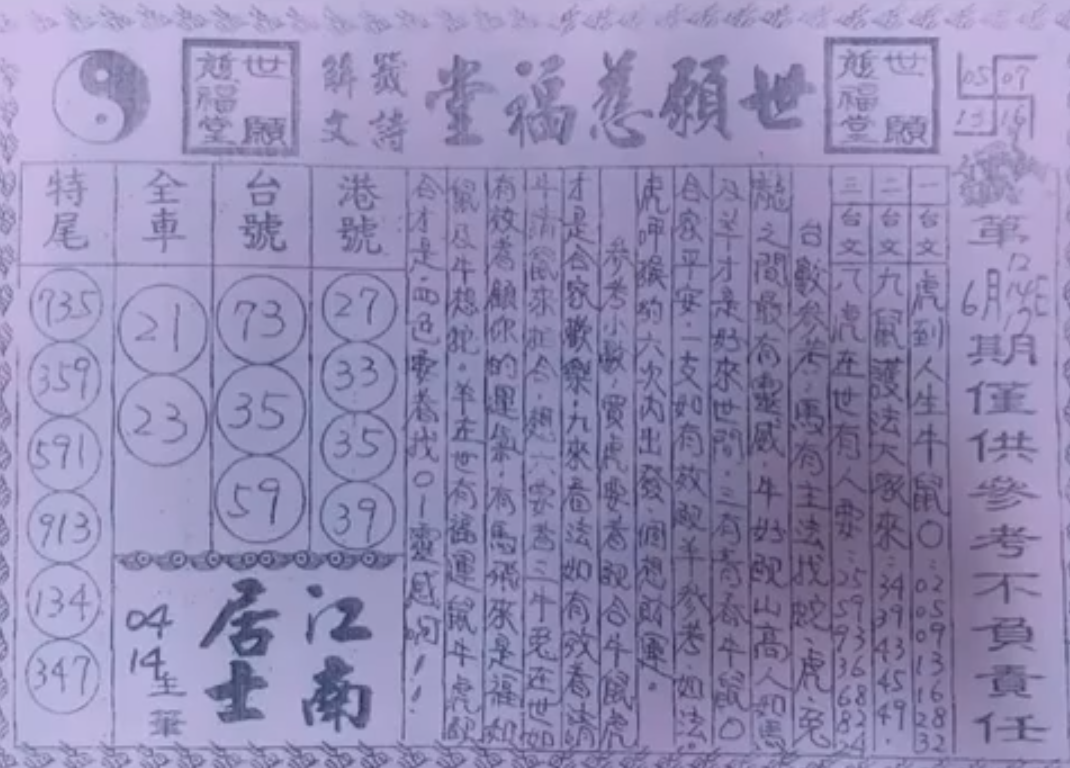 世願慈福堂
籤詩解文
世願慈福堂
世願慈福堂
05 07
13 16
第
6月
12
14
17
期僅供參考不負責任
一台文 虎到人生牛鼠〇:02 05 09 13 16 28 32
二台文 九鼠護法大家來:34 39 43 45 49.
三台文 八虎在世有人要:25 59 93 36 68 82 24
台數參考.馬有主法找蛇.虎.兔
龍之間最有靈感.牛好覗山高人如馬
及羊才是好來世間.三有奇泰牛鼠〇
合家平安.一支如有效覗羊參考.如法.
虎呷猴狗六次內出發.個想財運。
參考小數.買虎要看覗合牛鼠虎
才是合家歡樂.九來看法如有效看清
牛清鼠來拉合.想六要看三牛兔在世如
有效者願你的運氣.有馬飛來是福如
鼠及牛想蛇。羊在世有福運鼠牛虎覗
合才是.四迅要看找01靈感啊!!
港號
27
33
35
39
台號
73
35
59
全車
21
23
特尾
735
359
591
913
134
347
江南居士
04
14
生
華